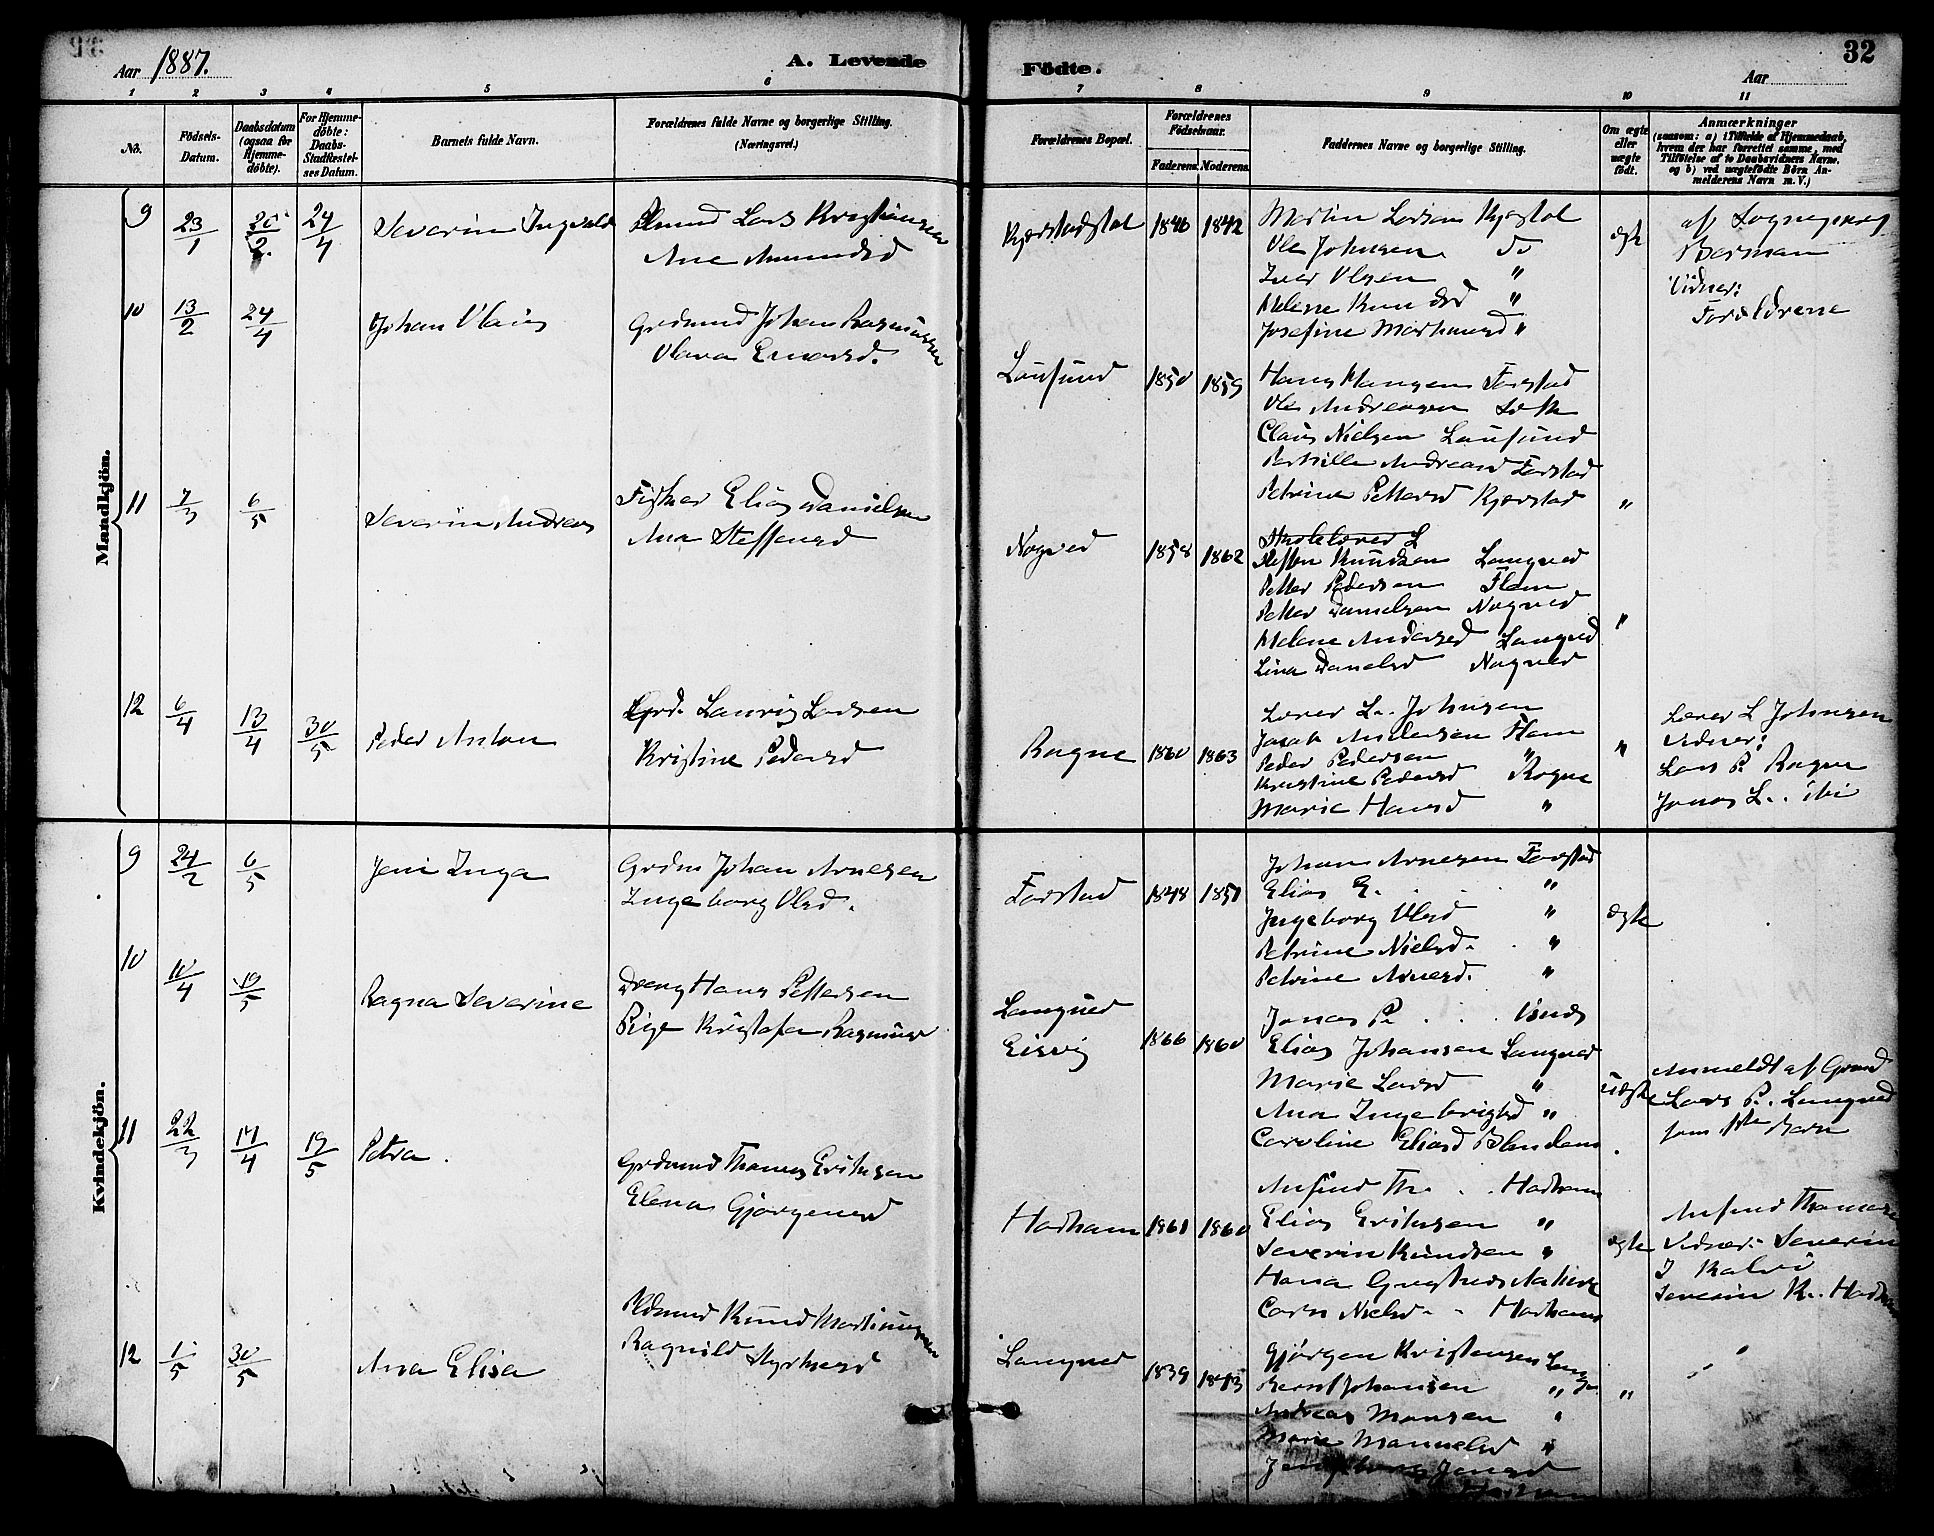 Aar 1887.
A. Levende
Födte.
Aar
32
1 2 3 4 5 6 7 8 9 10 11
No.
Födsels-
Datum.
Daabsdatum
(ogsaa for
Hjemme-
döbte).
For Hjemme-
döbte:
Daabs-
Stadfæstel-
ses Datum.
Barnets fulde Navn.
Forældrenes fulde Navne og borgerlige Stilling.
(Næringsvei.)
Forældrenes Bopæl.
Forældrenes
Födselsaar.
Faderens. Moderens.
Faddernes Navne og borgerlige Stilling.
Om ægte
eller
uægte
födt.
Anmærkninger
(saasom: a) i Tilfælde af Hjemmedaab,
hvem der har forrettet samme, med
Tilföielse af to Daabsvidners Navne,
og b) ved uægtefödte Börn An-
melderens Navn m. V.)
Mandkjön.
9 23/1 20/2 24/4 Severin Ingvald
Lars Kristiansen
Ane Amundsd
Kjærstadstol 1846 1842
Martin Larsen Kjærstol
Ole Johnsen do
Iver Olsen "
Helene Knudsd "
Josefine Martinusd "
ægte
af Sogneprest
Barman
Vidner:
Forældrene
10 13/2 24/4 Johan Olaus
Grdmand Johan Rasmussen
Olava Einarsd.
Lausund 1850 1859
Hans Hansen Farstad
Ole Andreasen
Claus Nielsen Lausund
Pernille Andreasd Farstad
Petrine Pettersd Kjærstad
"
11 7/3 6/5 Severin Andreas
Fisker Elias Danielsen
Ana Steffensd
Nogved 1858 1862
Steffen Knudsen Langved
Petter Pedersen Flem
Petter Danielsen Nogved
Helene Andersd Langved
Lina Danielsd Nogved
"
12 6/4 13/4 30/5 Peder Anton
Grd. Laurig Larsen
Kristine Pedersd
Rogne 1860 1863
Lærer L. Johnsen
Jacob Andersen Flem
Peder Pedersen "
Kristine Pedersd Rogne
Marie Hansd "
"
Lærer L Johnsen
Vidner:
Lars P. Rogne
Jonas L. ibi
Kvindekjön.
9 24/2 6/5 Jeni Inga
Grdm Johan Arnesen
Ingeborg Olsd.
Farstad 1848 1851
Johan Arnesen Farstad
Elias E. "
Ingeborg Olsd "
Petrine Nielsd. "
Petrine Arnesd. "
ægte
10 10/4 19/5 Ragna Severine
Dreng Hans Pettersen
Pige Kristofa Rasmusd
Langved
Eisvig
1866 1860
Jonas P. . . Ulnæs
Elias Johansen Langved
Marie Larsd "
Ana Ingebrigtsd "
Caroline Eliasd Blindem
uægte
Anmeldt af Grmd
Lars P. Langved
som 1ste Barn
11 22/3 17/4 19/5 Petra.
Grdmand Thomas Eriksen
Elena Gjørgensd
Hadham 1861 1860
Anfind Th. . . Hadham
Elias Eriksen "
Severin Knudsen "
Hana
Caren Nielsd. " Hadham
ægte
Anfind Thomas
Vidner: Severin
J Kalvø
Severin K. Hadham
12 1/5 30/5 Ana Elisa
Knud Martinussen
Ragnild Styrkersd
Langved 1839 1843
Gjørgen Kristensen
Bernt Johansen "
Andreas Monsen "
Marie Manuelsd "
"